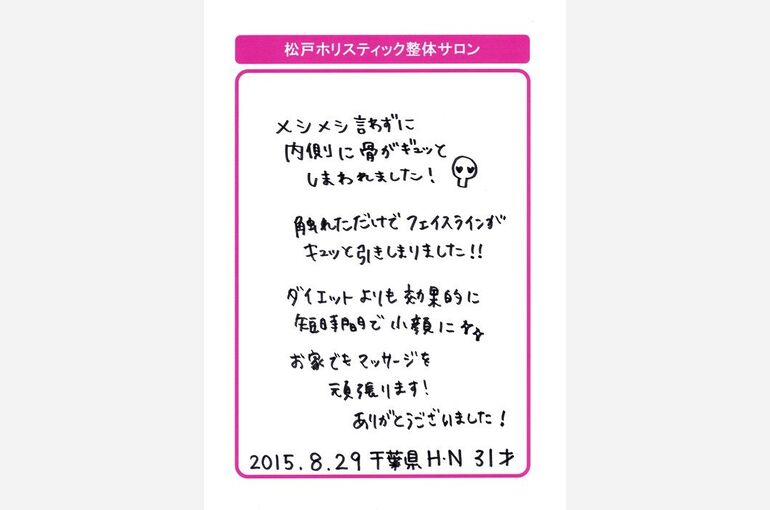 松戸ホリスティック整体サロン
メシメシ言わずに
内側に骨がギュッと
しまわれました!
触れただけでフェイスラインが
キュッと引きしまりました!!
ダイエットよりも効果的に
短時間で小顔に
お家でもマッサージを
頑張ります!
ありがとうございました!
2015.8.29 千葉県 H・N 31才